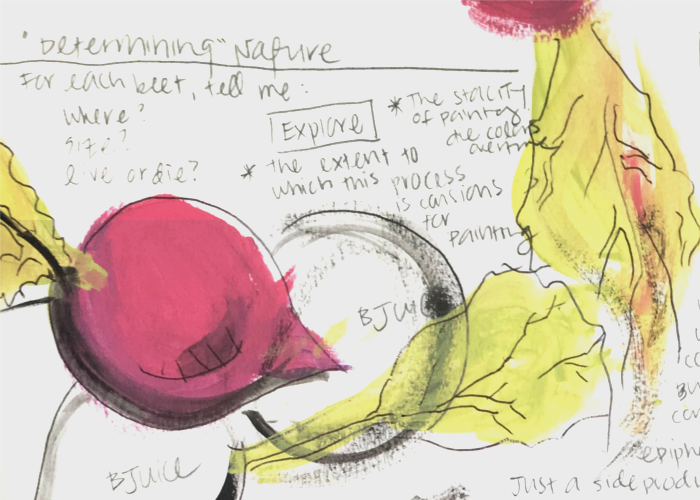 "Determining" Nature
For each beet, tell me:
where?
size?
live or die?
Explore
* The
of painting
the colors
* the extent to
which this process
is
for
painting
BJuice
BJuice
co
BU
co
epiph
Just a sideprodu